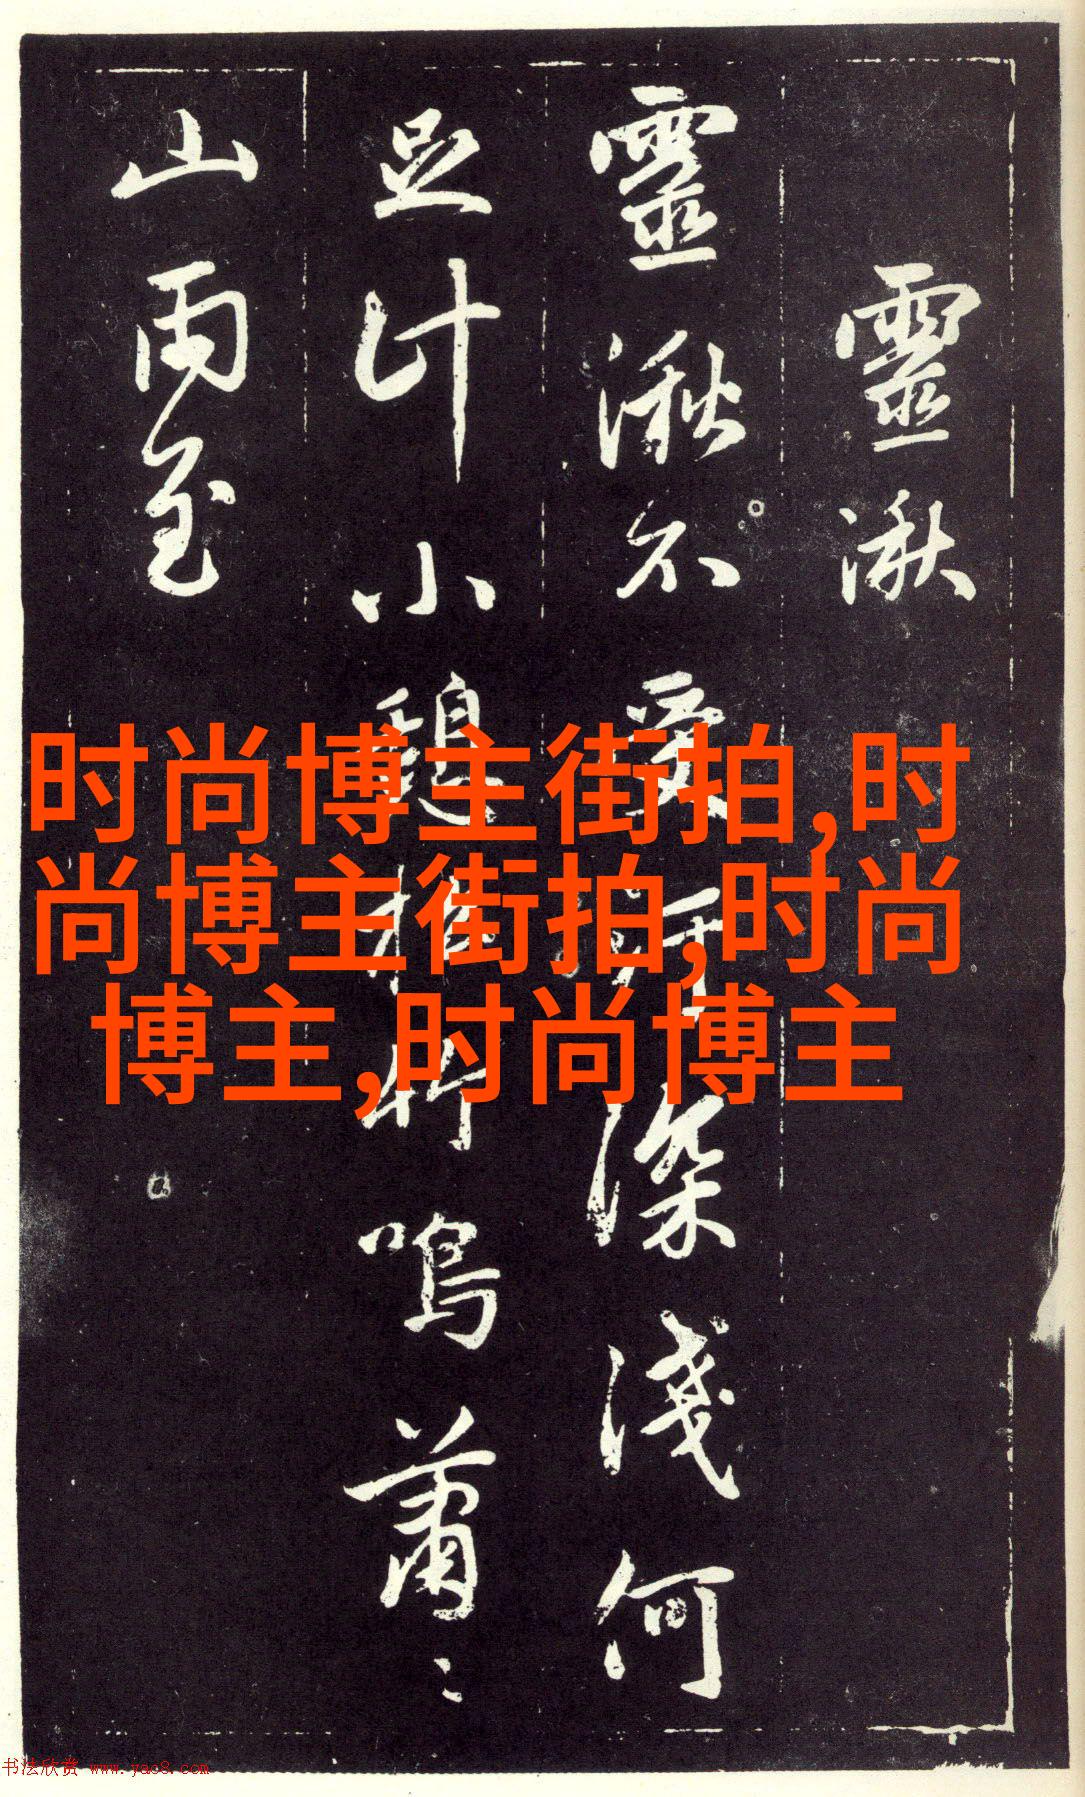 靈湫
靈湫不受汙深淺何
足計小魄摧折鳴蕭〻
山雨至
时尚博主街拍,时
尚博主街拍,时尚
博主,时尚博主
书法欣赏 www.yac8.com